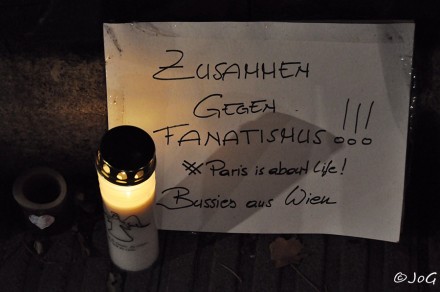 ZUSAMMEN
GEGEN
FANATISMUS !!!
# Paris is about life!
Bussies aus Wien
©JoG